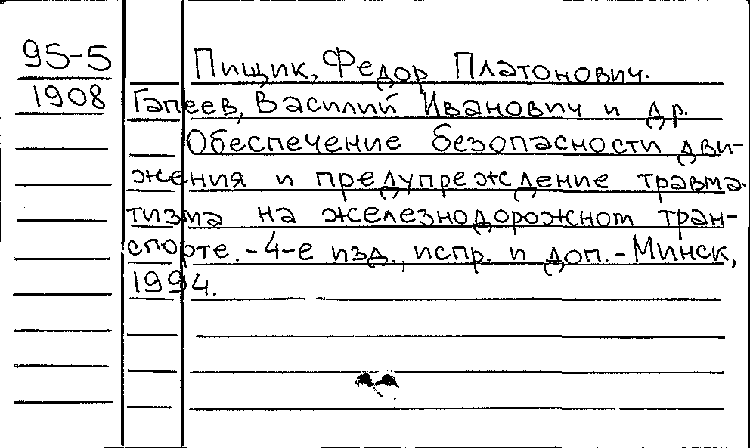 95-5
1908
Пищик, Федор Платонович.
Гапеев, Василий Иванович и др.
Обеспечение безопасности дви-
жения и предупреждение травма-
тизма на железнодорожном тран-
спорте. - 4-е изд., испр. и доп. - Минск,
1994.